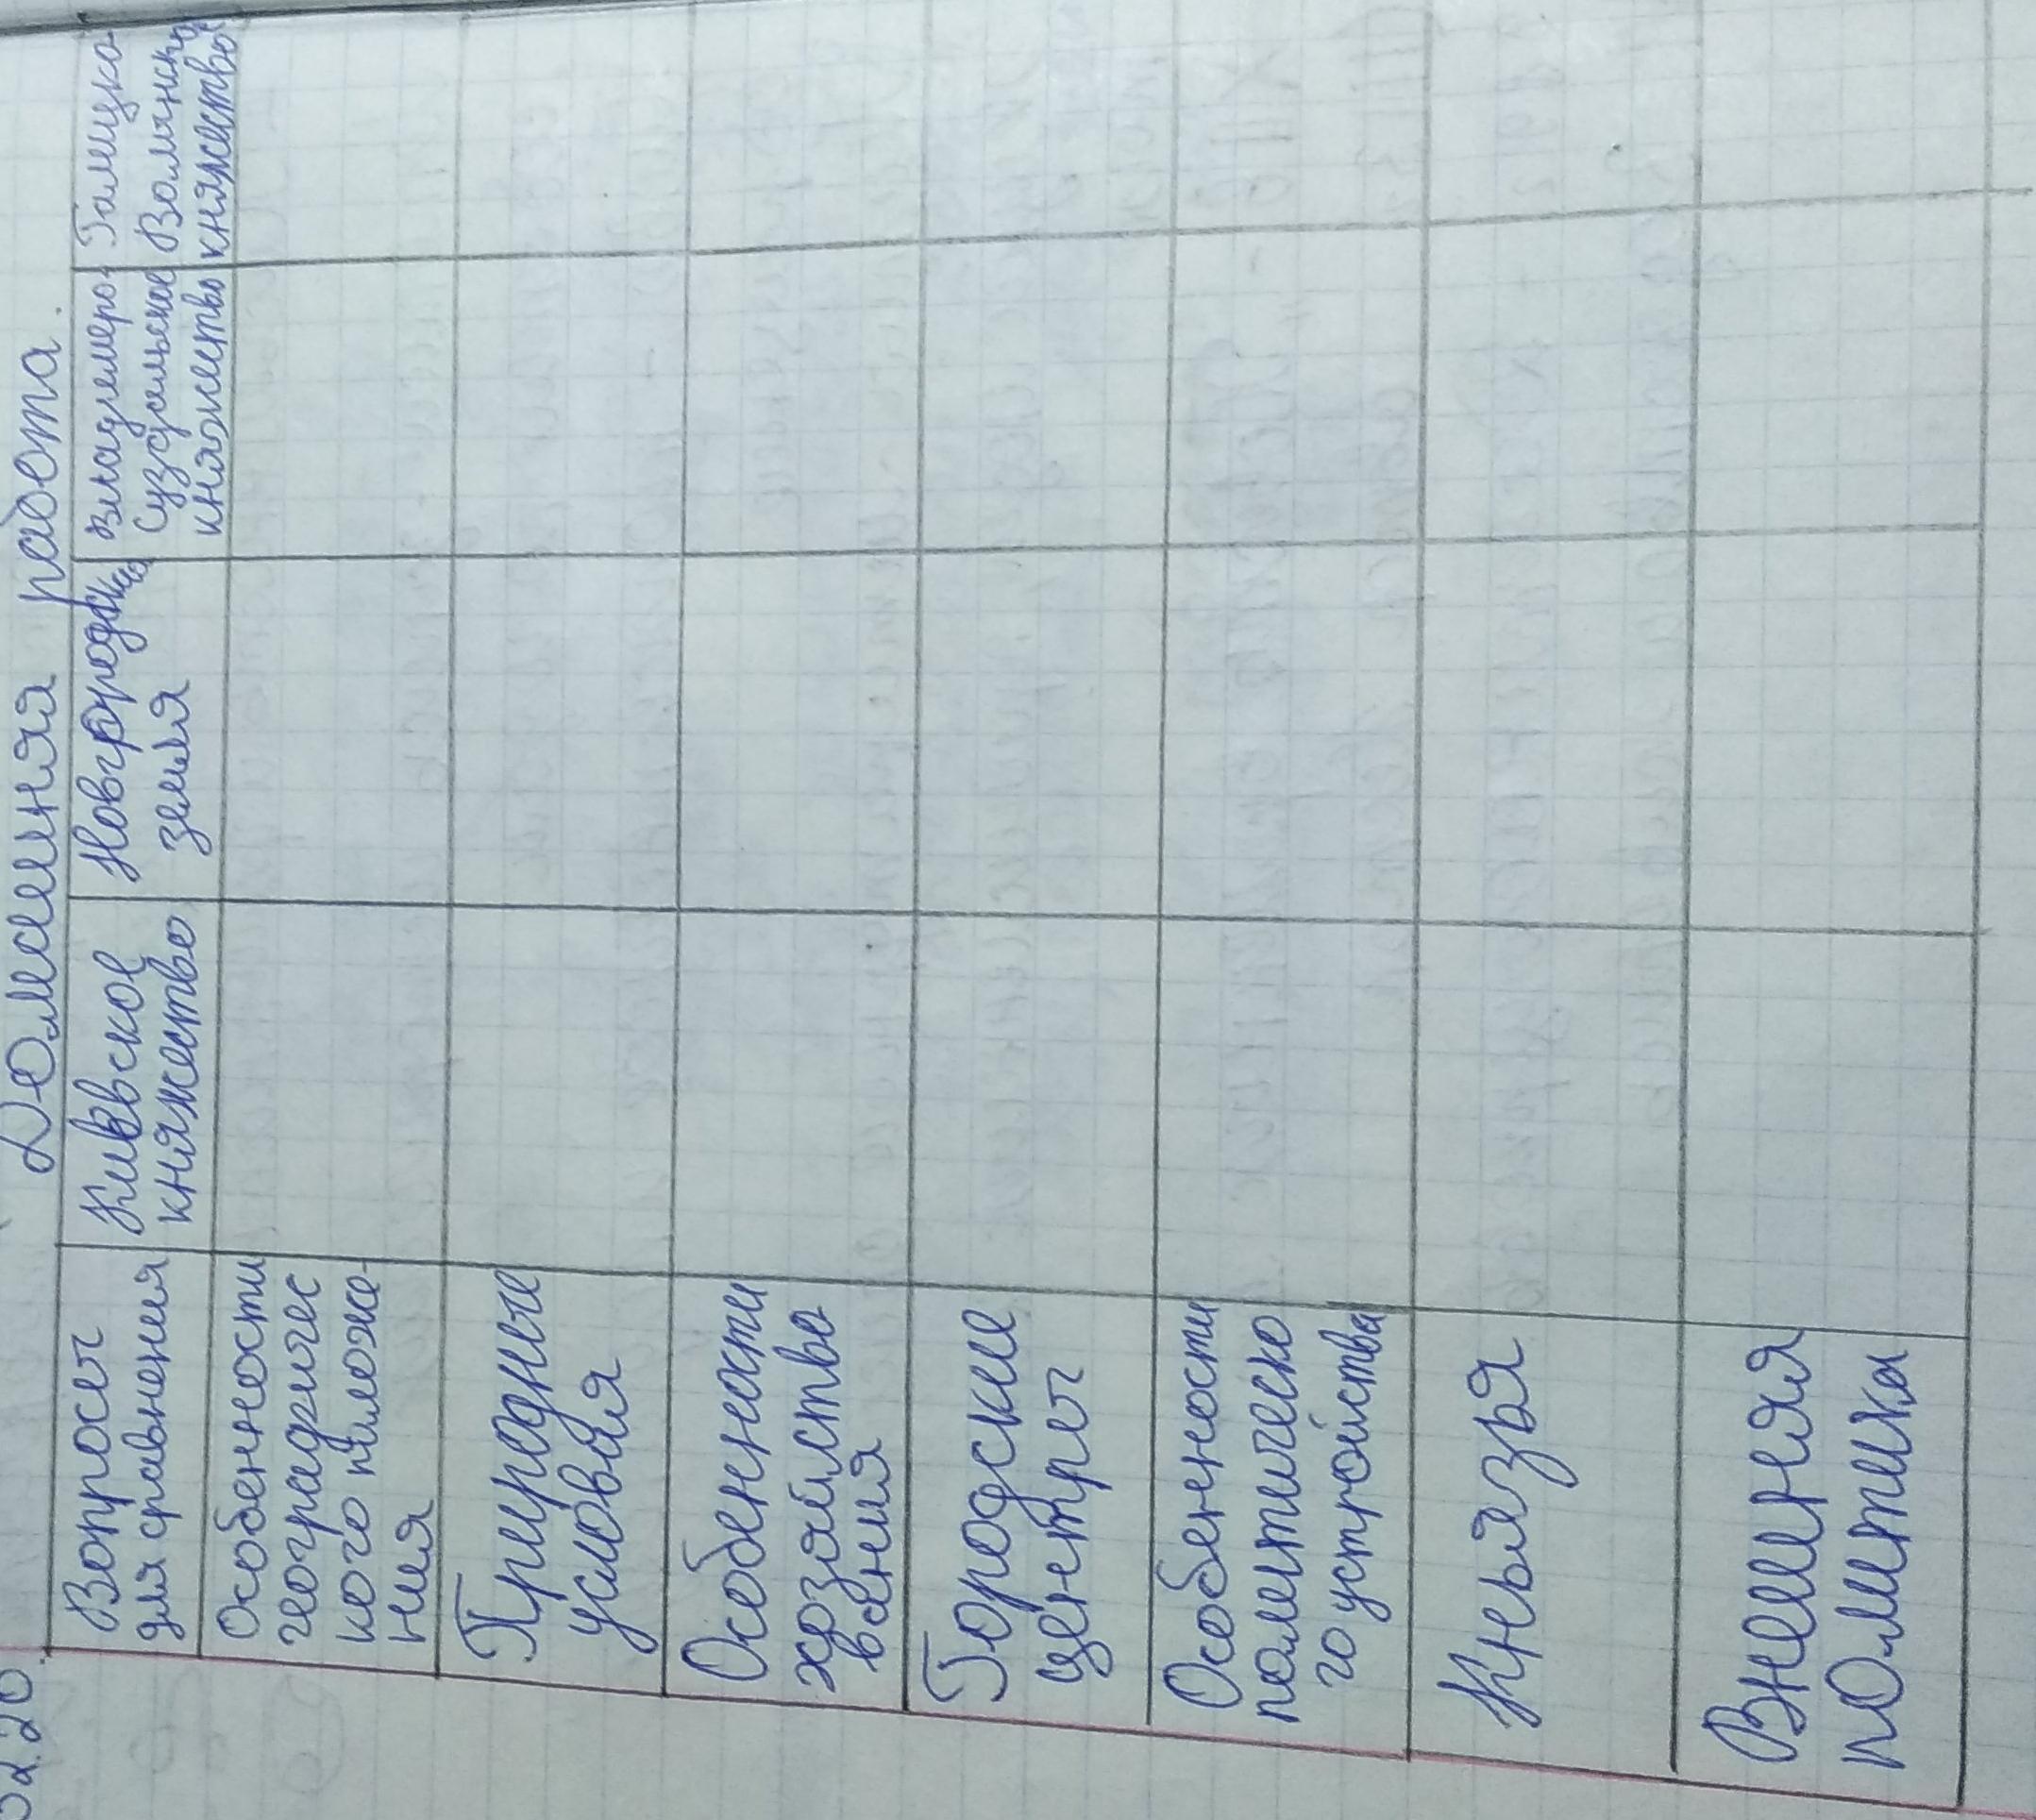 02.20.
Домашняя работа.
Вопросы
для сравнения
Киевское
княжество
Новгородская
земля
Владимиро-
Суздальское
княжество
Галицко-
Волынское
княжество
Особенности
географичес
кого положе-
ния
Природные
условия
Особенности
хозяйство
вания
Городские
центры
Особенности
политическо
го устройства
Князья
Внешняя
политика